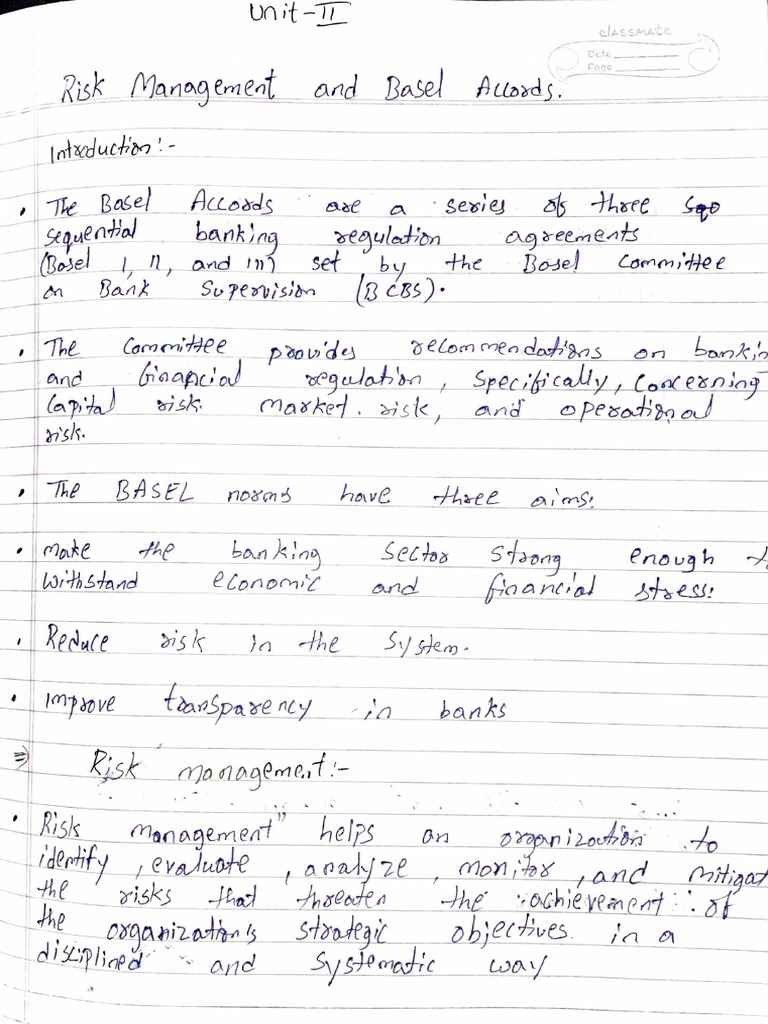 Unit-II
classmate
Date
Page
Risk Management and Basel Accords.
Introduction:-
• The Basel Accords are a series of three
sequential banking regulation agreements
(Basel I, II, and III) set by the Basel Committee
on Bank Supervision (BCBS).
• The Committee provides recommendations on bankin
and financial regulation, specifically, concerning
Capital risk. market. risk, and operational
risk.
• The BASEL norms have three aims:
• make the banking sector strong enough t
withstand economic and financial stress:
• Reduce risk in the system.
• Improve transparency in banks
⇒ Risk management:-
• Risk management" helps an organization to
identify, evaluate, analyze, monitor, and mitigat
the risks that threaten the achievement of
the organization's strategic objectives in a
disciplined and systematic way